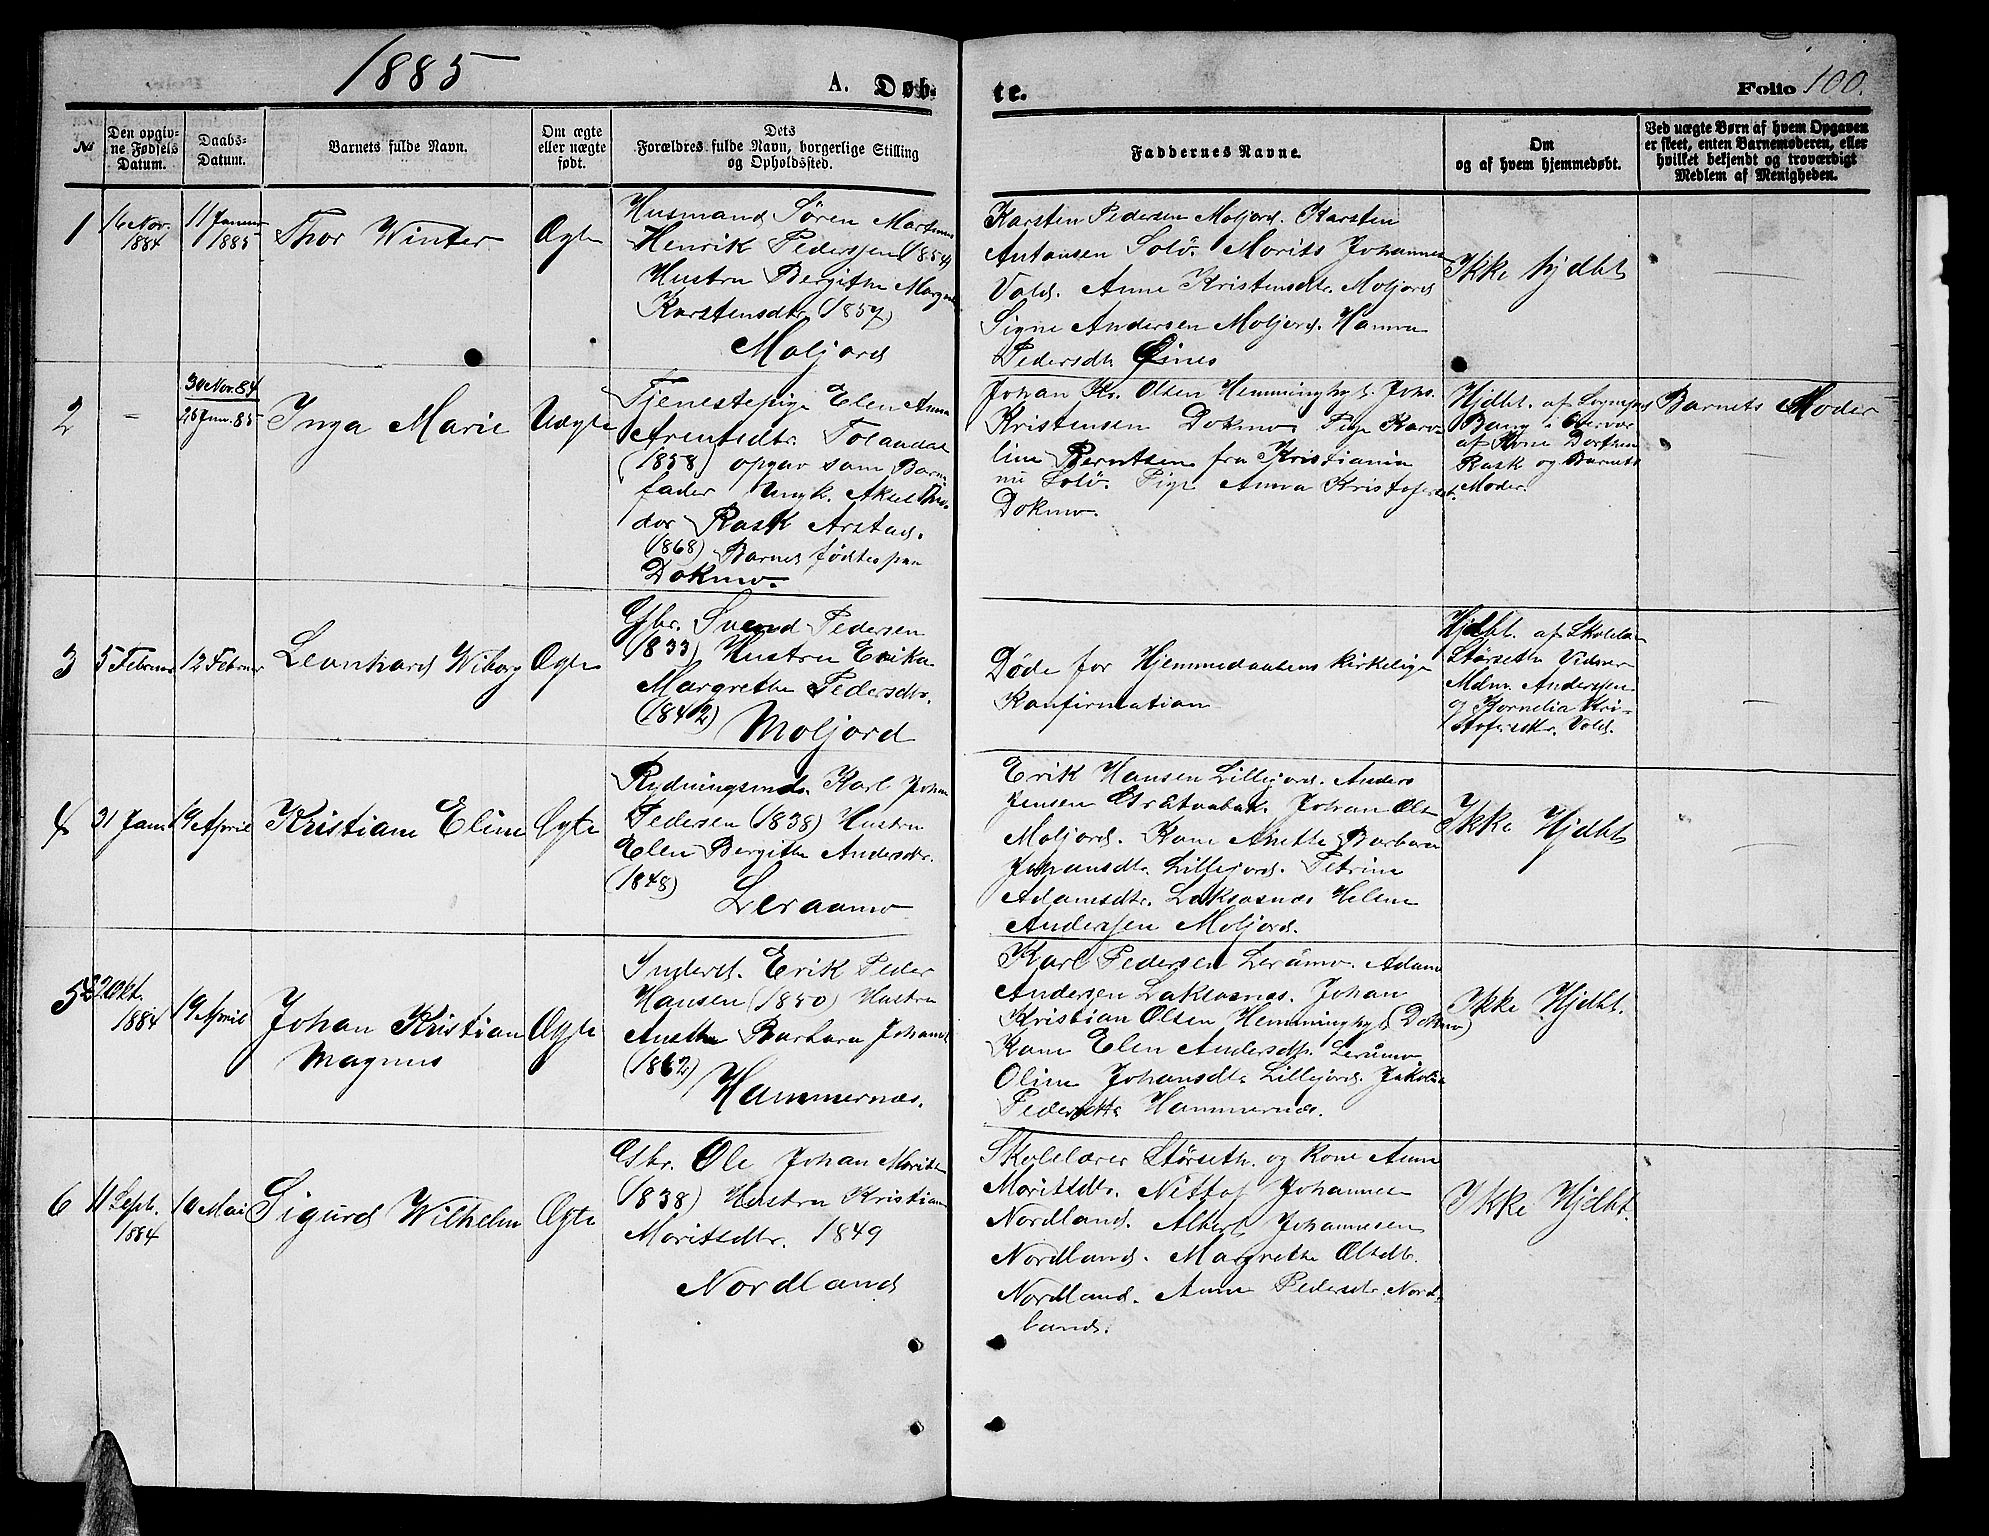 1885
A. Døb-
te.
Folio 100.
№
Den opgiv-
ne Fødsels
Datum.
Daabs-
Datum.
Barnets fulde Navn.
Om ægte
eller uægte
født.
Dets
Forældres fulde Navn, borgerlige Stilling
og Opholdssted.
Faddernes Navne.
Om
og af hvem hjemmedøbt.
Ved uægte Børn af hvem Opgaven
er skeet, enten Barnemoderen, eller
hvilket bekjendt og troværdigt
Medlem af Menigheden.
1
16 Nov.
1884
11 Januar
1885
Thor Winter
Ægte
Husmand Sören
Henrik Pederssen (1854)
Hustru Bergithe
Karstensdtr. (1857)
Moljord
Karsten Pedersen Moljord. Karsten
Antonsen Solö. Morits Johannes
Vold. Anne Kristensdtr. Moljord
Signe Andersen Moljord. Hanna
Pedersdtr Osnes
Ikke hjdbt
2
-
30 Nov. 84
25 Jan. 85
Inga Marie
Uægte
Tjenestepige Elen Anna
Arentsdtr.
(1858) opgav som Barne
fader Ungk. Aksel Theo-
dor Rask Arstad.
(1868) Barnet fødtes paa
Dokmo.
Johan Kr. Olsen Hemminghyt. Johs.
Kristensen Dokmo Pige Karo-
line Berntsen fra Kristiania
nu Solö. Pige Anna
Dokmo.
Hjdbt. af Sognepr
Bang i Overvær
af Kone Dorthea
Rask og Barnets
Moder.
Barnets Moder
3
5 Februar
12 Februar
Leonhard Wiborg
Ægte
Gbr. Svend Pedersen
(1833) Hustru Erika
Margrethe Pedersdtr.
(1842) Moljord
Döde før Hjemmedaabens kirkelige
Konfirmation
Hjdbt. af Skolelær
Störseth Vidner
Mdm. Anderssen
og Kornelia Kri-
stofersdtr. Vold.
4
31 Jan
19 April
Kristiane Eline
Ægte
Rydningsmd. Karl Johan
Pedersen (1838) Hustru
Elen Bergithe Andersdtr.
(1848)
Leraamo
Erik Hansen Lillejord. Anders
Jensen Johan Olsen
Moljord. Kone Anette Barbara
Johansdtr. Lillejord. Petrine
Adamsdtr. Laksosnes Helene
Anderssen Moljord.
Ikke Hjdbt
5
22 Okt.
1884
19 April
Johan Kristian
Magnus
Ægte
Inderst. Erik Peder
Hansen (1850) Hustru
Anethe Barbara Johansd
(1862)
Hammernæs.
Karl Pedersen Leråmo. Adam
Andersen Laksosnes. Johan
Kristian Olsen Hemminghyt (Dokmo)
Kone Elen Andersdtr. Leråmo
Oline Johansdtr Lillejord. Jakobia
Pedersdtr Hammernæs.
Ikke Hjdbt.
6
11 Sept.
1884
10 Mai
Sigurd Wilhelm
Ægte
Gbr. Ole Johan Moritsen
(1838) Hustru Kristiane
Moritsdtr. 1849
Nordland
Skolelærer Störseth. og Kone Anne
Moritsdtr. Johannes
Nordland. Albert Johannesen
Nordland. Margrethe Olsdtr.
Nordland. Anne Pedersdtr. Nord-
land.
Ikke Hjdbt.